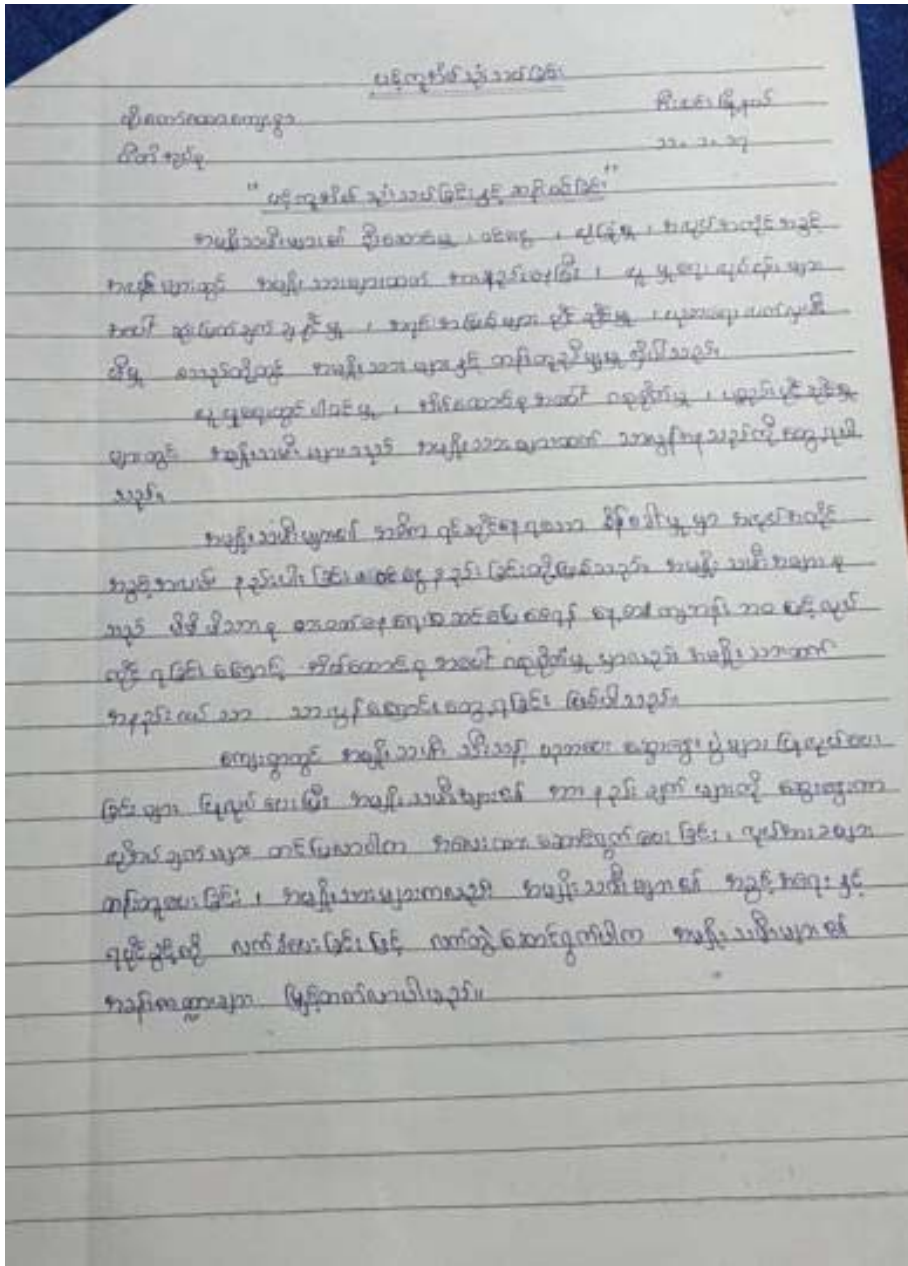 ပင့်ကူအိမ်သုံးသပ်ခြင်း
ကျေးရွာ မြို့နယ်
"ပင့်ကူအိမ် သုံးသပ်ခြင်းနှင့် ဆန်းစစ်ခြင်း"
အမျိုးသမီးများ၏ ဦးဆောင်မှု ၊ ဝင်ငွေ ၊ လုံခြုံမှု ၊ အလုပ်အကိုင် အခွင့်
အလမ်းများတွင် အမျိုးသားများထက် အားနည်းနေပြီး ၊ လူမှုရေးလုပ်ငန်းများ
အပေါ် ဆုံးဖြတ်ချက်ချနိုင်မှု ၊ အရင်းအမြစ်များ ပိုင်ဆိုင်မှု ၊ ပညာရေး လက်လှမ်းမီ
မှီမှု စသည်တို့တွင် အမျိုးသားများနှင့် တန်းတူညီမျှမှု ရှိပါသည်။
လူမှုရေးတွင် ပါဝင်မှု ၊ အိမ်ထောင်စုအပေါ် ဂရုစိုက်မှု ၊ ပစ္စည်းပိုင်ဆိုင်မှု
များတွင် အမျိုးသမီးများသည် အမျိုးသားများထက် အားသာနေသည်ကို တွေ့ရပါ
သည်။
အမျိုးသမီးများ၏ အဓိက ရင်ဆိုင်နေရသော စိန်ခေါ်မှုမှာ အလုပ်အကိုင်
အခွင့်အလမ်း နည်းပါးခြင်း၊ ဝင်ငွေနည်းခြင်းတို့ဖြစ်သည်။ အမျိုးသမီးအများစု
သည် မိမိမိသားစု စားဝတ်နေရေး အဆင်ပြေစေရန် နေ့စား ကျဘန်း ဘဝဖြင့် လုပ်
ကိုင်ရခြင်းကြောင့် အိမ်ထောင်စုအပေါ် ဂရုစိုက်မှုမှာလည်း အမျိုးသားထက်
အနည်းငယ်သာ သာလွန်ကြောင်းတွေ့ရခြင်း ဖြစ်ပါသည်။
ကျေးရွာတွင် အမျိုးသမီး သီးသန့် ပညာပေး ဆွေးနွေးပွဲများ ပြုလုပ်ပေး
ခြင်းများ ပြုလုပ်ပေးပြီး အမျိုးသမီးများ၏ အားနည်းချက်များကို ဆွေးနွေးကာ
လိုအပ်ချက်များ တင်ပြလာပါက အလေးထားဆောင်ရွက်ပေးခြင်း ၊ လုပ်အားခများ
တန်းတူပေးခြင်း ၊ အမျိုးသားများကလည်း အမျိုးသမီးများ၏ အခွင့်အရေးနှင့်
ရပိုင်ခွင့်ကို လက်ခံပေးခြင်းဖြင့် လက်တွဲဆောင်ရွက်ပါက အမျိုးသမီးများ၏
အခန်းကဏ္ဍများ မြှင့်တက်လာပါမည်။